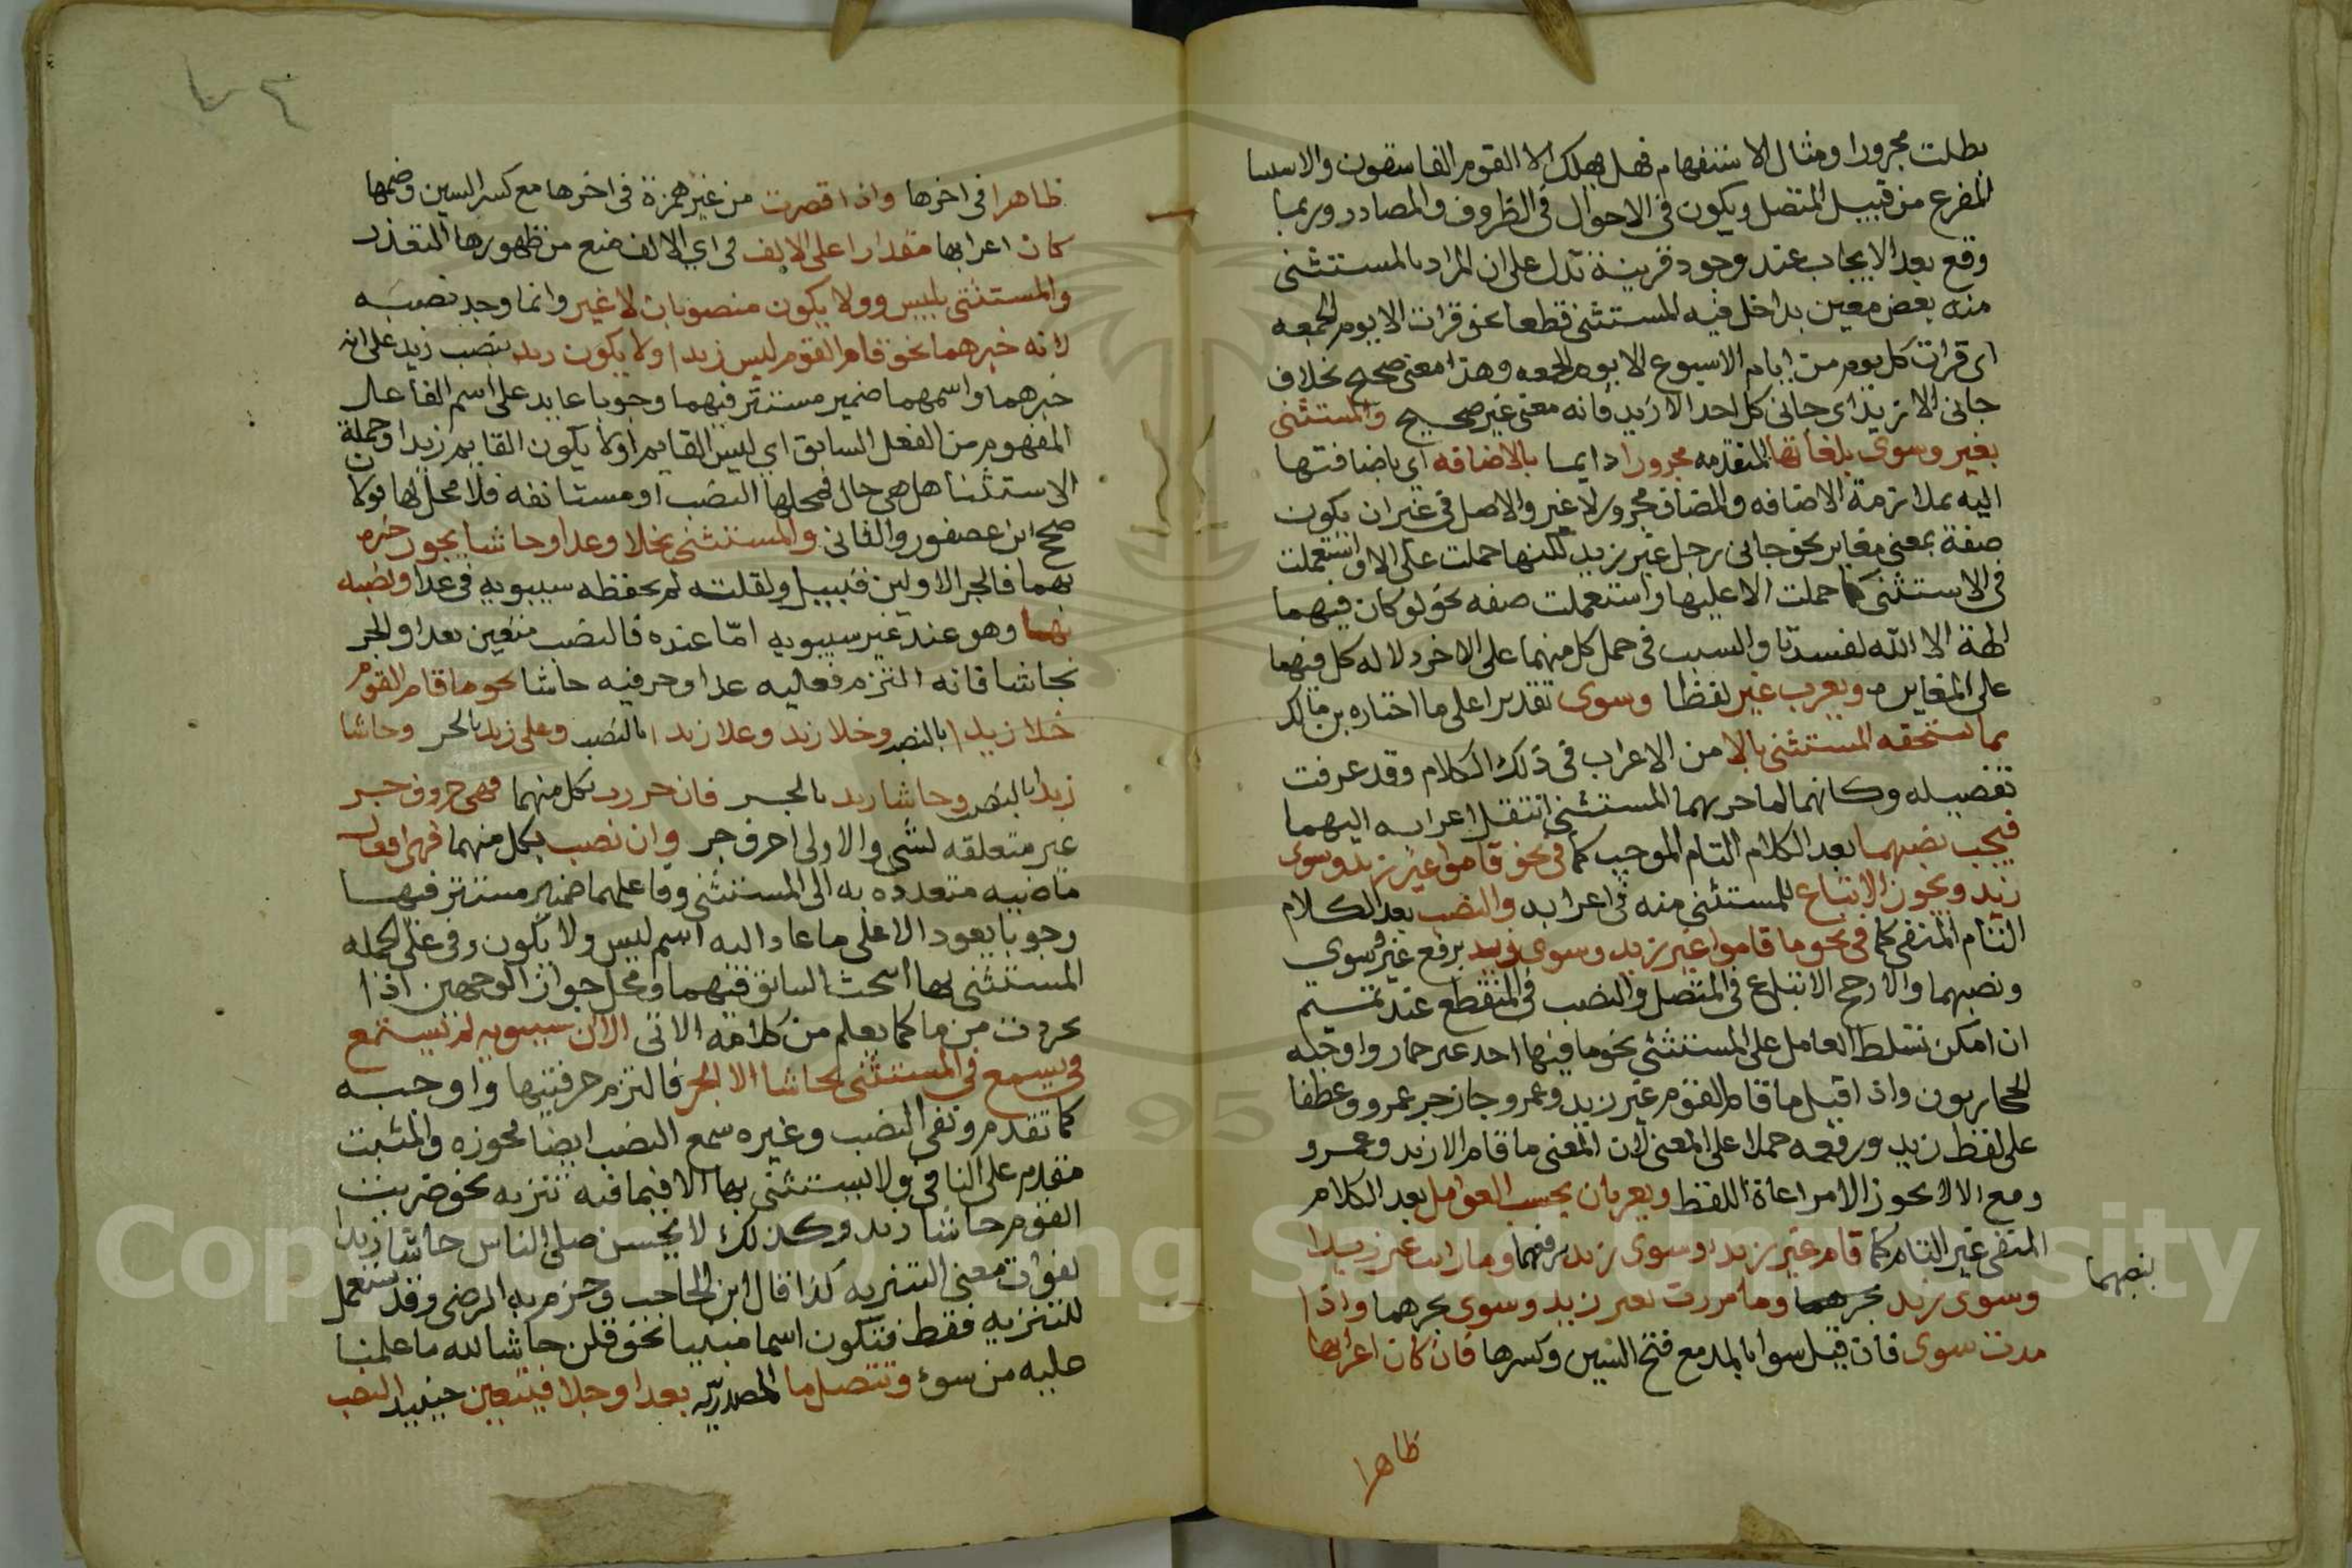 بطلت مجرورا ومثال الاستفهام فهل يهلك الا القوم الفاسقون والاستثنا
المفرغ من قبيل المتصل ويكون في الاحوال في الظروف والمصادر وربما
وقع بعد الايجاب عند وجود قرينة تدل على ان المراد بالمستثنى
منه بعض معين يدخل فيه المستثنى قطعا نحو قرات الا يوم الجمعه
اى قرات كل يوم من ايام الاسبوع الا يوم الجمعه وهذا معنى صحيح بخلاف
جانى الا زيد اى جانى كل احد الا زيد فانه معنى غير صحيح والمستثنى
بغير وسوى بلغاتها المتقدمه مجرورا دايما بالاضافه اى باضافتها
اليه بملازمة الاضافه والمضاف مجرور لا غير والاصل في غير ان يكون
صفة بمعنى مغاير نحو جانى رجل غير زيد لكنها حملت على الا واستعملت
في الاستثنى كما حملت الا عليها واستعملت صفه نحو لو كان فيهما
الهة الا الله لفسدتا والسبب في حمل كل منهما على الاخر دلاله كل فيهما
على المغايره ويعرب غير لفظا وسوى تقديرا على ما اختاره بن مالك
بما يستحقه المستثنى بالا من الاعراب في ذلك الكلام وقد عرفت
تفصيله وكانهما لما جر بهما المستثنى انتقل اعرابه اليهما
فيجب نصبهما بعد الكلام التام الموجب كما في نحو قاموا غير زيد وسوى
زيد ويجوز الاتباع للمستثنى منه في اعرابه والنصب بعد الكلام
التام المنفى كما في نحو ما قاموا غير زيد وسوى زيد برفع غير وسوى
ونصبهما والارجح الاتباع في المتصل والنصب في المنقطع عند تميم
ان امكن تسلط العامل على المستثنى نحو ما فيها احد غير حمار واوجبه
الحجازيون واذا قيل ما قام القوم غير زيد وعمرو جاز جر عمرو وعطفا
على لفظ زيد ورفعه حملا على المعنى لان المعنى ما قام الا زيد وعمرو
ومع الا لا يجوز الا مراعاة اللفظ ويعربان بحسب العوامل بعد الكلام
المنفى غير التام كما قام غير زيد وسوى زيد برفعهما وما رايت غير زيد
وسوى زيد بجرهما وما مررت بغير زيد وسوى بجرهما واذا
بنصبهما
مدت سوى فان قيل سوا بالمد مع فتح السين وكسرها فان كان اعرابها
ظاهرا
ظاهرا في اخرها واذا قصرت من غير همزة في اخرها مع كسر السين وضمها
كان اعرابها مقدارا على الالف في اي الالف منع من ظهورها التعذر
والمستثنى بليس وولا يكون منصوبان لا غير وانما وجب نصبه
لانه خبرهما نحو قام القوم ليس زيدا ولا يكون زيد بنصب زيد على انه
خبرهما واسمهما ضمير مستتر فيهما وجوبا عايد على اسم الفاعل
المفهوم من الفعل السابق اي ليس القايم او لا يكون القايم زيدا وجملة
الاستثنا هل هي حال فمحلها النصب او مستانفه فلا محل لها قولان
صحح ابن عصفور والثانى والمستثنى بخلا وعدا وحاشا يجوز جره
بهما فالجر الاولين قليل ولقلته لم يحفظه سيبويه في عدا ونصبه
بهما وهو عند غير سيبويه امّا عنده فالنصب متعين بعدا والجر
بحاشا فانه التزم فعليه عدا وحرفيه حاشا نحو ما قام القوم
خلا زيدا بالنصب وخلا زيد وعلا زيدا بالنصب وعلى زيد بالجر وحاشا
زيدا بالنصب وحاشا زيد بالجر فان جررت بكل منهما فهي حروف جر
غير متعلقه لشي والاولى احرف جر وان نصب بكل منهما فهي افعال
ماضيه متعدده به الى المستثنى وفاعلهما ضمير مستتر فيها
وجوبا يعود الا على ما عاد اليه اسم ليس ولا يكون وفي محل الجمله
المستثنى بها البحث السابق فيهما ومحل جواز الوجهين اذا
جردت من ما كما يعلم من كلامه الاتى الا ان سيبويه لم يستمع
في يسمع في المستثنى بحاشا الا الجر فالتزم حرفيتها واوجبه
كما تقدم ونفى النصب وغيره سمع النصب ايضا فجوزه والمثبت
مقدم على النافي ولا يستثنى بها الا فيما فيه تنزيه نحو ضربت
القوم حاشا زيد وكذلك لا يحسن صلى الناس حاشا زيدا
لفوات معنى التنزيه كذا قال ابن الحاجب وجزم به الرضى وقد تستعمل
للتنزيه فقط فتكون اسما مبنيا نحو قلن حاشا لله ما علمنا
عليه من سوء وتتصل ما المصدريّه بعدا وخلا فيتعين حينيد النصب
Copyright © King Saud University